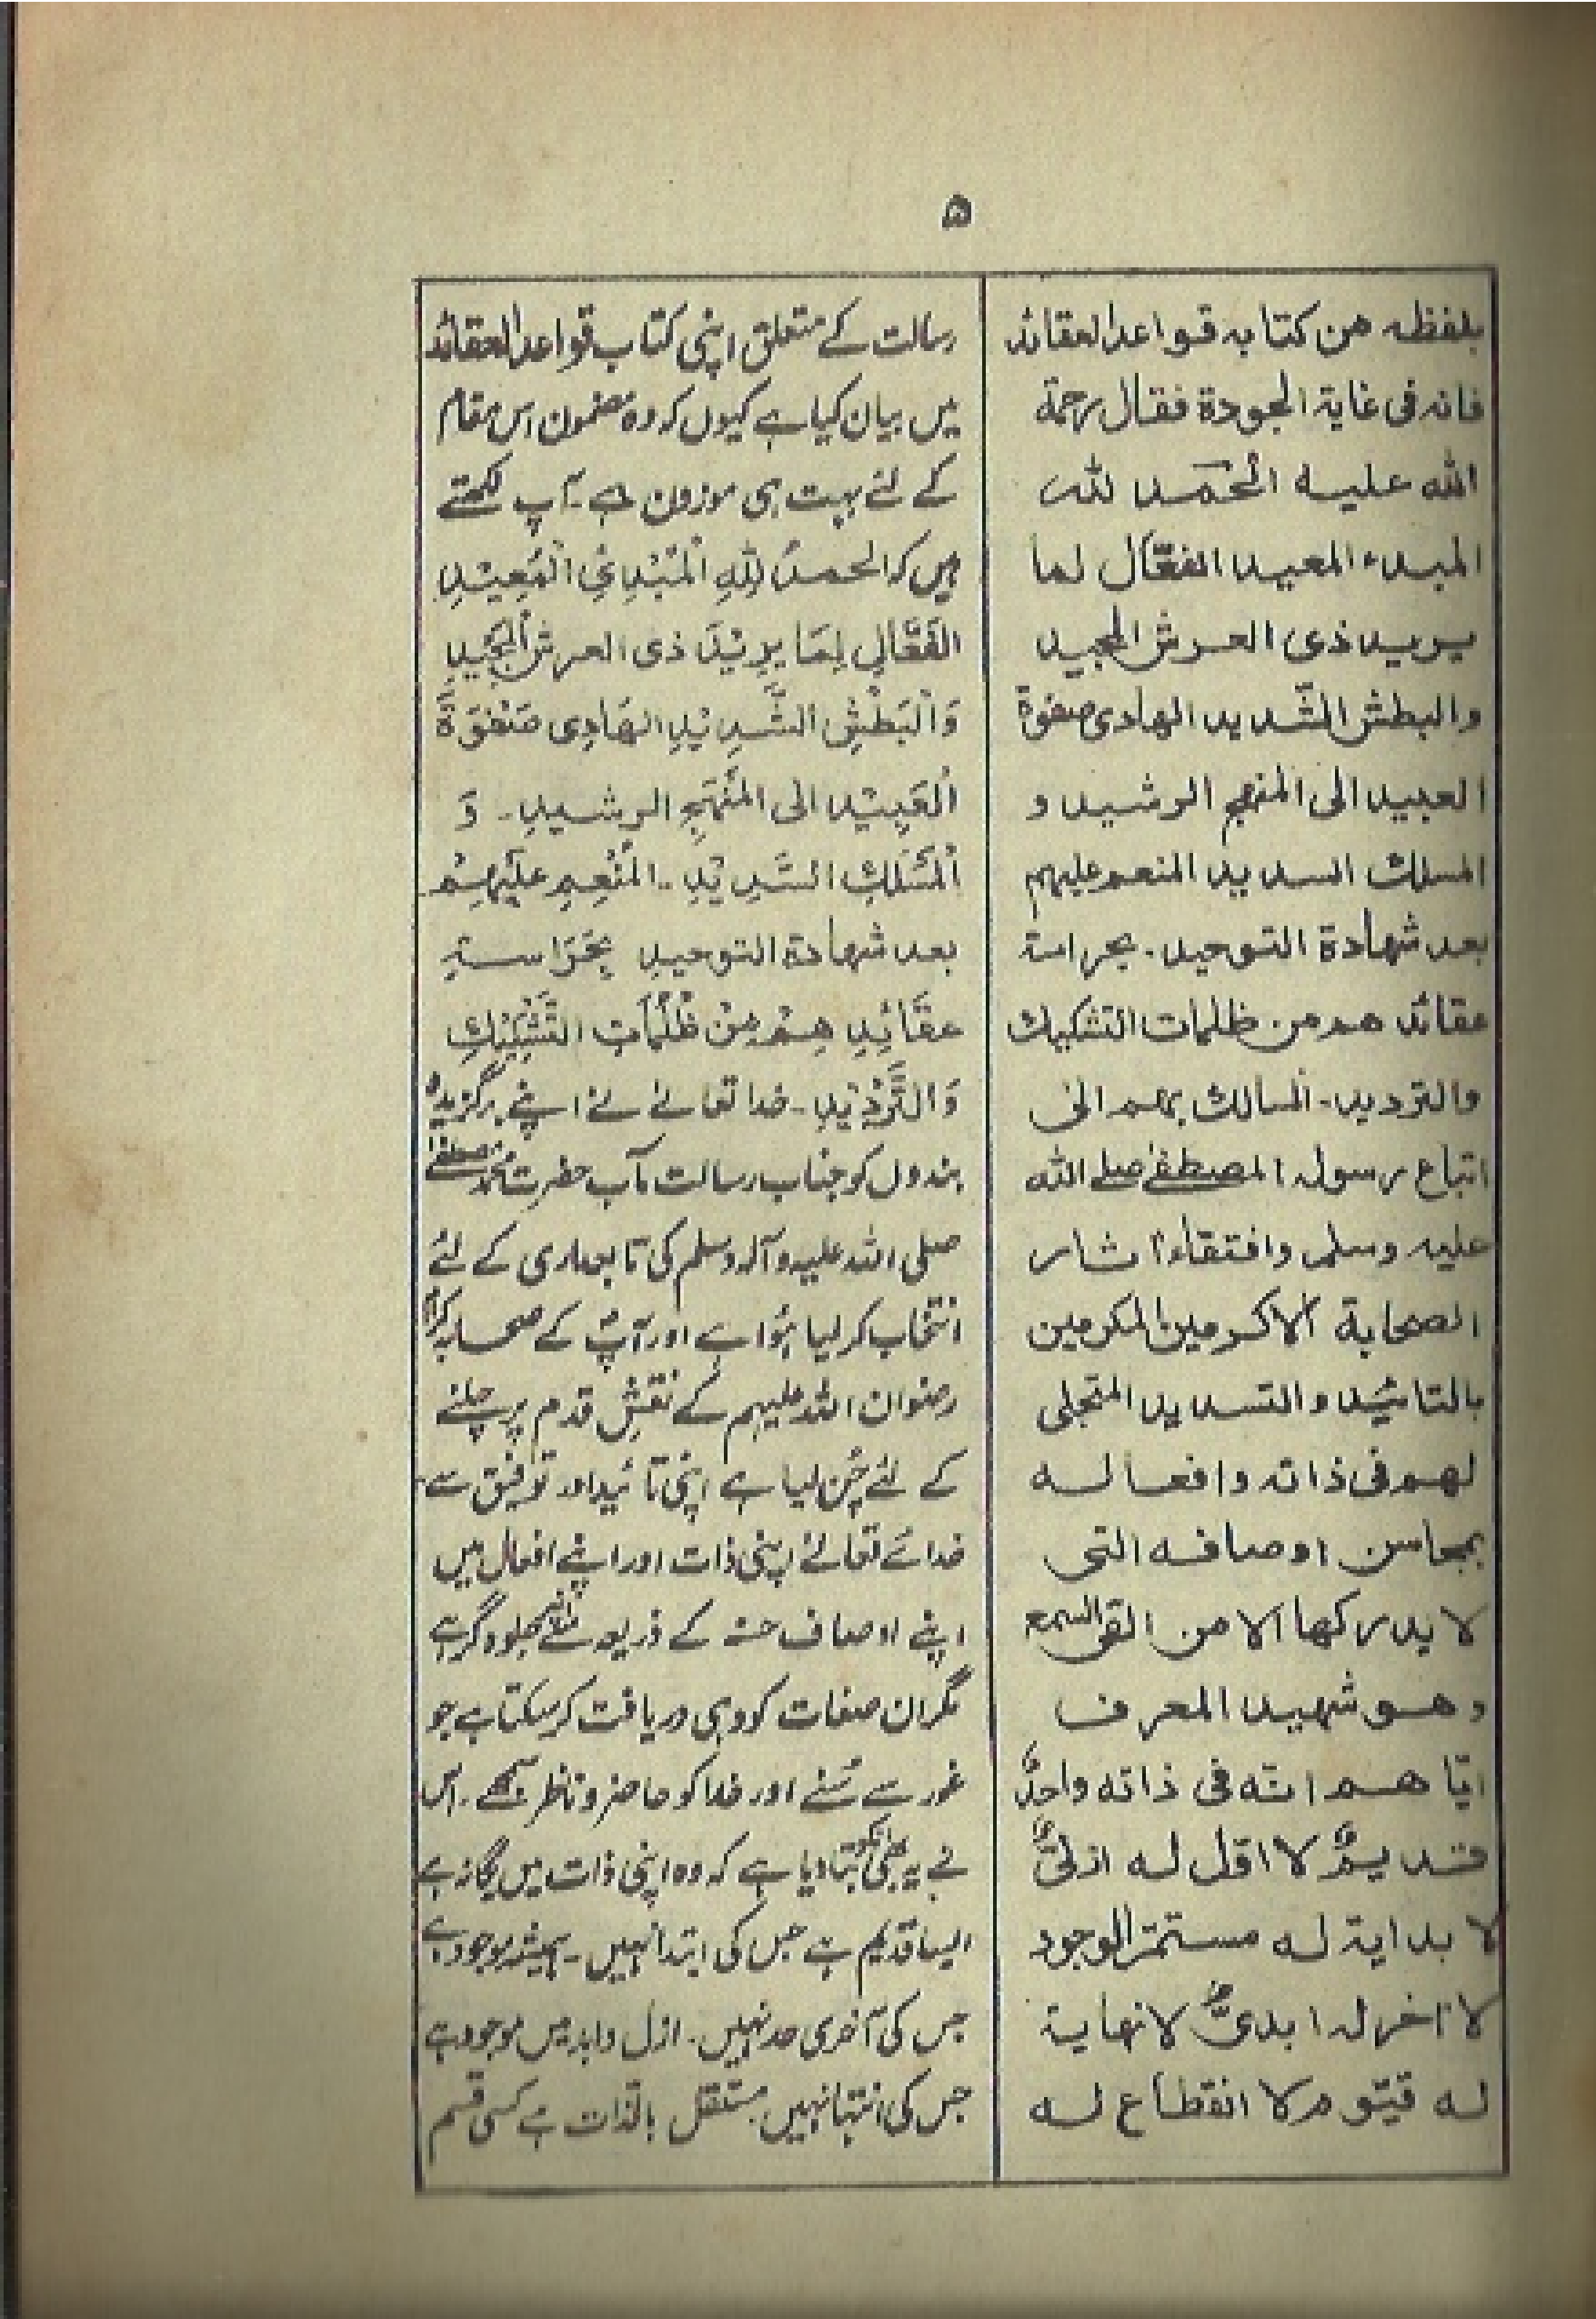 ۵
بلفظہ من کتابہ قواعد العقائد
فانہ فی غایۃ الجودۃ فقال رحمۃ
اللہ علیہ الحمد للہ
المبدء المعید الفعّال لما
یرید ذی العرش المجید
والبطش الشّدید الہادی صفوۃ
العبید الی المنہج الرشید و
المسلک السدید المنعم علیہم
بعد شہادۃ التوحید۔ بحراسۃ
عقائد ہم من ظلمات التشکیک
والتردید۔ السالک بہم الی
اتباع رسولہ المصطفےٰ صلے اللہ
علیہ وسلم واقتفاء آثار
الصحابۃ الاکرمین المکرمین
بالتائید والتسدید المتجلی
لہم فی ذاتہ وافعالہ
بمحاسن اوصافہ التی
لا یدرکہا الا من القی السمع
وھو شہید المعرف
ایّا ھم انّہ فی ذاتہ واحدٌ
قدیمٌ لا اوّل لہ ازلیٌّ
لا بدایۃ لہ مستمر الوجود
لا آخر لہ ابدیٌّ لا نہایۃ
لہ قیّوم لا انقطاع لہ
رسالت کے متعلق اپنی کتاب قواعد العقائد
میں بیان کیا ہے کیوں کہ وہ مضمون اس مقام
کے لئے بہت ہی موزون ہے۔ آپ لکھتے
ہیں کہ الحمدُ لِلّٰہِ الْمُبْدِئِ الْمُعِیْدِ
الفَعَّالِ لِمَا یرِیْدُ ذی العرش الْمَجِیْدِ
وَالْبَطْشِ الشَّدِیْدِ الہَادِی صَفْوَۃَ
الْعَبِیْدِ الی الْمَنْہَجِ الرشیدِ۔ وَ
الْمَسْلَکِ السَّدِیْدِ۔ الْمُنْعِمِ عَلَیْہِمْ
بعد شہادۃ التوحیدِ بِحَرَاسۃِ
عقَائِدِ ہِمْ مِنْ ظُلُمَاتِ التَّشْکِیْکِ
وَالتَّرْدِیْدِ۔ خدا تعالےٰ نے اپنے برگزیدہ
بندوں کو جناب رسالت مآب حضرت محمد مصطفےٰ
صلی اللہ علیہ وآلہ وسلم کی تابعداری کے لئے
انتخاب کر لیا ہؤا ہے اور آپؐ کے صحابہ کرامؓ
رضوان اللہ علیہم کے نقشِ قدم پر چلنے
کے لئے چُن لیا ہے اپنی تائید اور توفیق سے
خدائے تعالےٰ اپنی ذات اور اپنے افعال میں
اپنے اوصاف حسنہ کے ذریعہ سے جلوہ گر ہے
مگر ان صفات کو وہی دریافت کر سکتا ہے جو
غور سے سُنے اور خدا کو حاضر و ناظر سمجھے۔ اس
نے یہ بھی انکو بتا دیا ہے کہ وہ اپنی ذات میں یگانہ ہے
ایسا قدیم ہے جس کی ابتدا نہیں۔ ہمیشہ موجود ہے
جس کی آخری حد نہیں۔ ازل و ابد میں موجود ہے
جس کی انتہا نہیں مستقل بالذات ہے کسی قسم